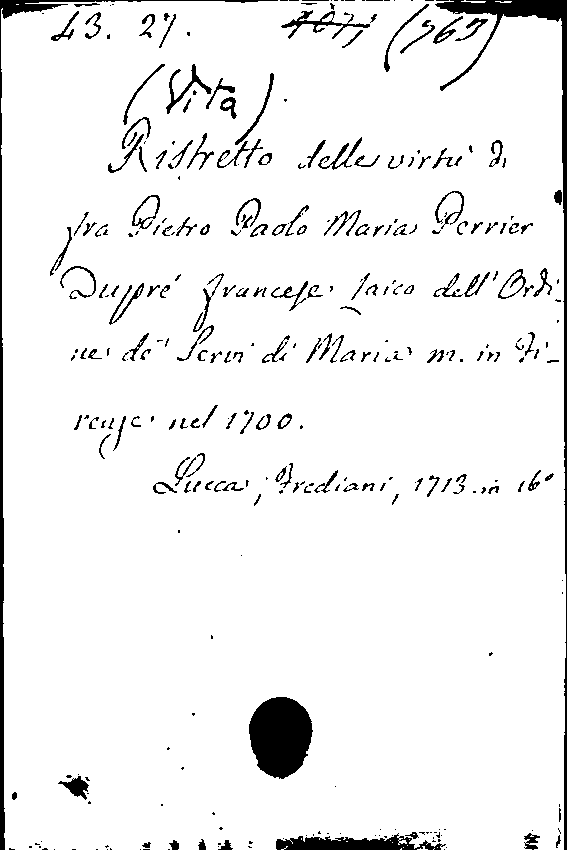 43. 27. (763)
(Vita).
Ristretto delle virtù di
fra Pietro Paolo Maria Perrier
Dupré francese laico dell'Ordi-
ne de' Servi di Maria m. in Fi-
renze nel 1700.
Lucca, Frediani, 1713. in 16°